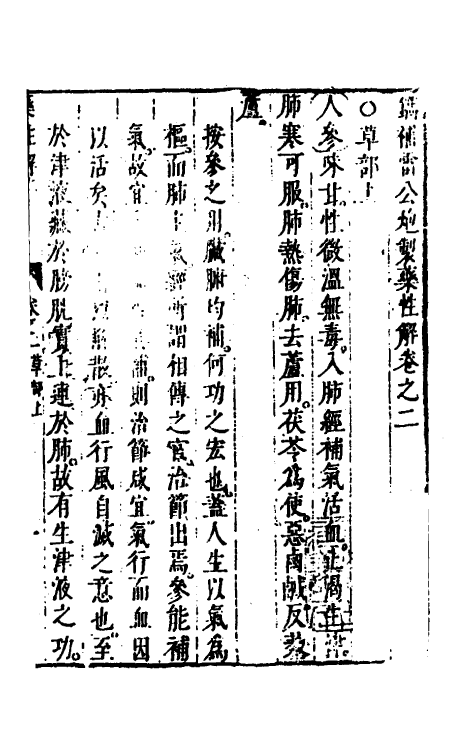 鐫補雷公炮製藥性解卷之二
○草部上
人參味甘性微溫無毒入肺經補氣活血止渴生津
肺寒可服肺熱傷肺去蘆用茯苓為使惡鹵鹹反藜
蘆
按參之用臟腑均補何功之宏也蓋人生以氣為
樞而肺主氣 所謂相傳之官治節出焉參能補
氣故宜 補則治節咸宜氣行而血因
以活矣 散亦血行風自滅之意也至
於津液藏於膀胱實上連於肺故有生津液之功
藥性解 卷之二草部上